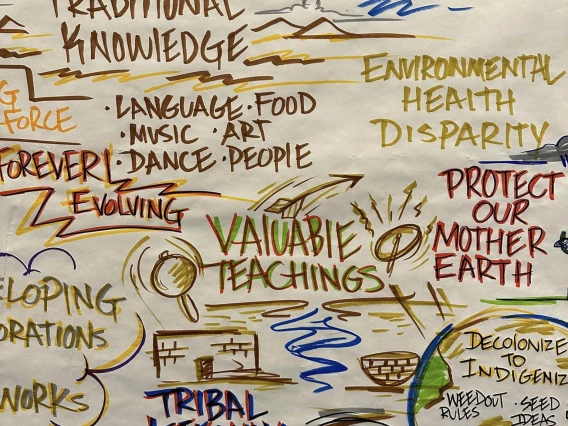 TRADITIONAL
KNOWLEDGE
G
FORCE
· LANGUAGE · FOOD
· MUSIC · ART
· DANCE · PEOPLE
ENVIRONMENTAL
HEALTH
DISPARITY
FOREVER
EVOLVING
PROTECT
OUR
MOTHER
EARTH
VALUABLE
TEACHINGS
ELOPING
ORATIONS
WORKS
TRIBAL
DECOLONIZE
TO
INDIGENIZ
WEEDOUT
RULES
· SEED
IDEAS